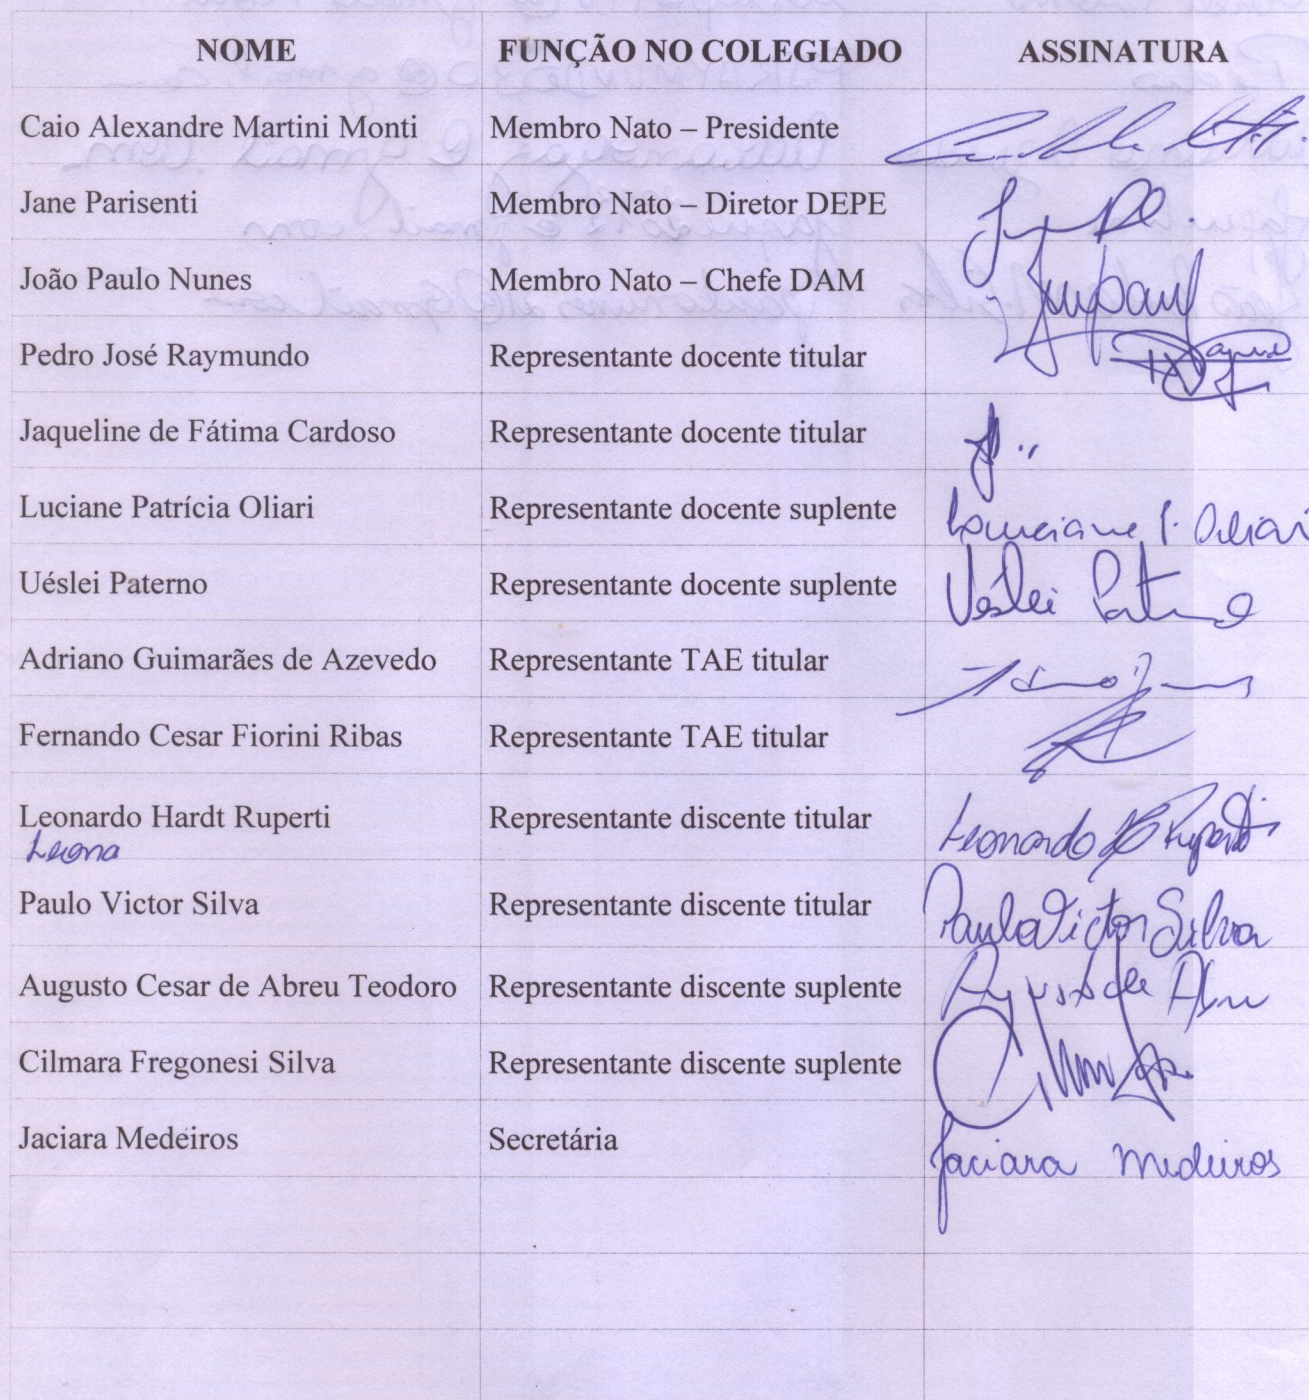 NOME FUNÇÃO NO COLEGIADO ASSINATURA
Caio Alexandre Martini Monti Membro Nato – Presidente
Jane Parisenti Membro Nato – Diretor DEPE
João Paulo Nunes Membro Nato – Chefe DAM
Pedro José Raymundo Representante docente titular
Jaqueline de Fátima Cardoso Representante docente titular
Luciane Patrícia Oliari Representante docente suplente Luciane P. Oliari
Uéslei Paterno Representante docente suplente Uéslei Paterno
Adriano Guimarães de Azevedo Representante TAE titular
Fernando Cesar Fiorini Ribas Representante TAE titular
Leonardo Hardt Ruperti Representante discente titular Leonardo H Ruperti
Leona
Paulo Victor Silva Representante discente titular Paulo Victor Silva
Augusto Cesar de Abreu Teodoro Representante discente suplente
Cilmara Fregonesi Silva Representante discente suplente
Jaciara Medeiros Secretária Jaciara Medeiros